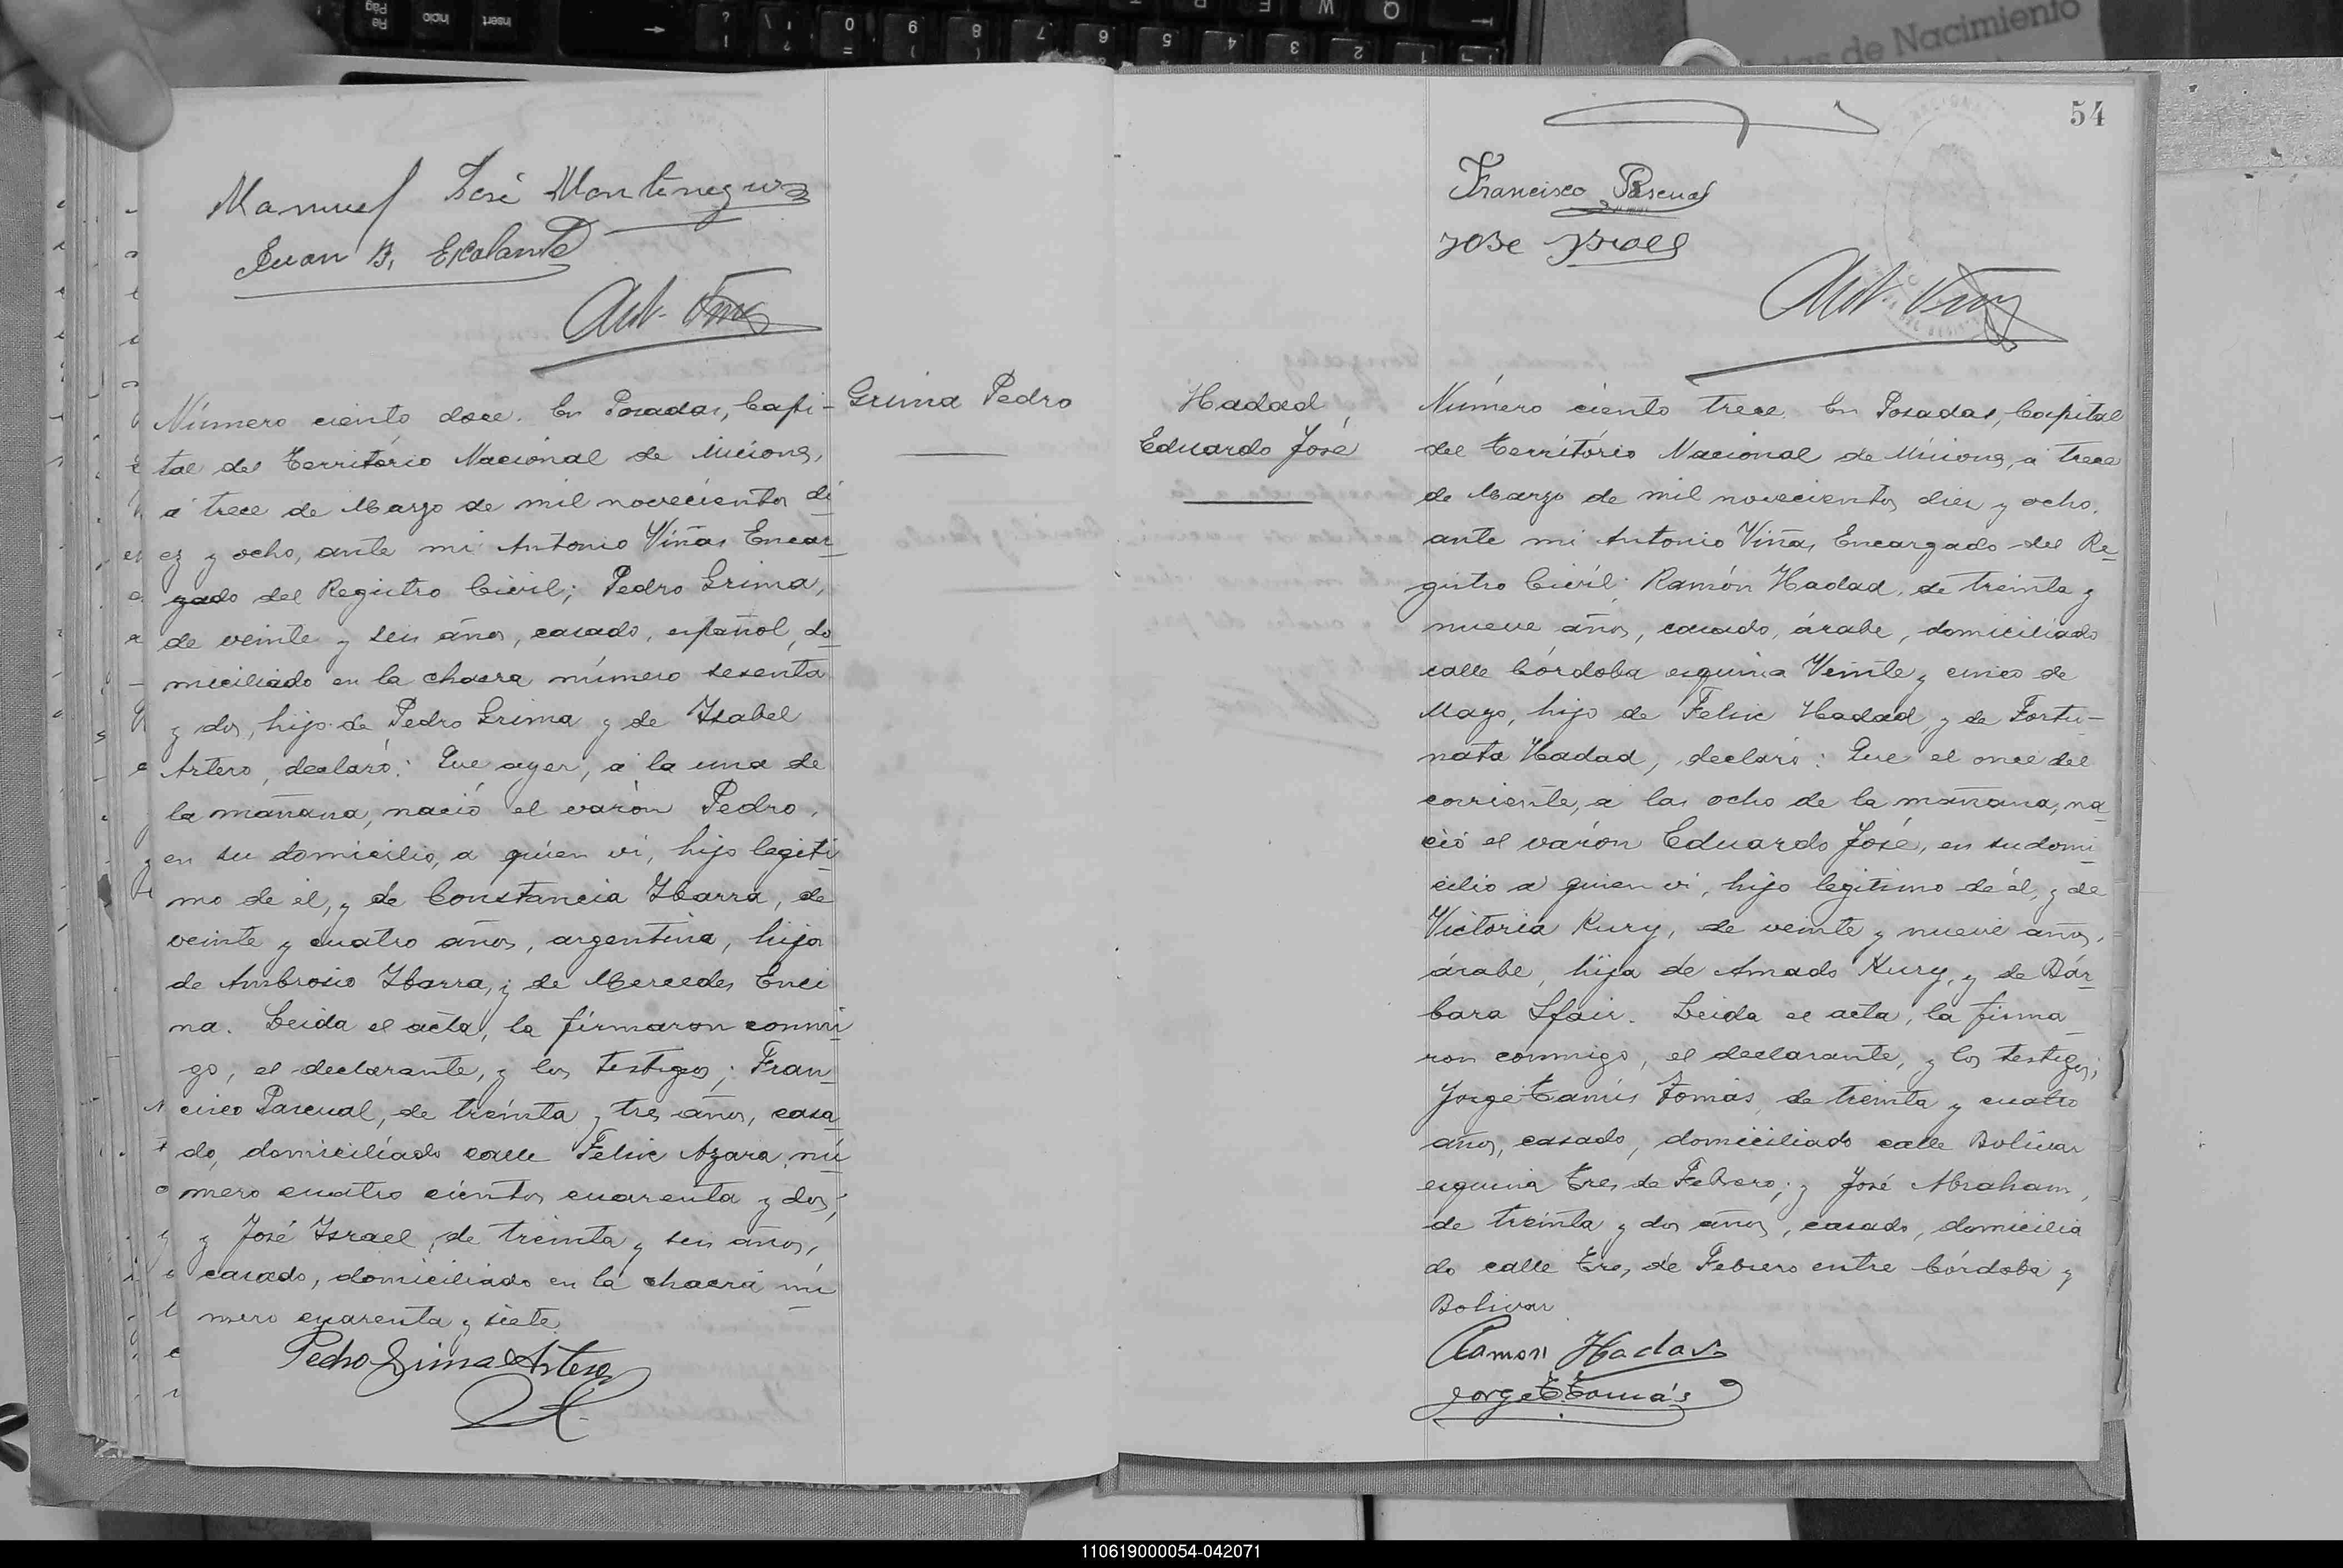 Manuel José Montenegro
Juan B. Escalante
Ant. Viñas
Grima Pedro
Número ciento doce. En Posadas, Capi-
tal del Território Nacional de Misiones,
a trece de Marzo de mil novecientos di
ez y ocho, ante mi Antonio Viñas Encar
gado del Registro Civil; Pedro Grima,
de veinte y seis años, casado, español, do
miciliado en la chacra número sesenta
y dos, hijo de Pedro Grima y de Isabel
Artero, declaró: Que ayer, a la una de
la mañana, nació el varón Pedro,
en su domicilio, a quien vi, hijo legiti
mo de él, y de Constancia Ibarra, de
veinte y cuatro años, argentina, hija
de Ambrosio Ibarra, y de Mercedes Enci
na. Leida el acta, la firmaron conmi
go, el declarante, y los testigos; Fran
cisco Pascual, de treinta y tres años, casa
do, domiciliado calle Felix Azara, nú
mero cuatro cientos cuarenta y dos,
y José Israel, de treinta y seis años,
casado, domiciliado en la chacra nú
mero cuarenta y siete.
Pedro Grima Artero
54
Francisco Pascual
José Israel
Ant. Viñas
Hadad,
Eduardo José
Número ciento trece. En Posadas, Capital
del Território Nacional de Misiones, a trece
de Marzo de mil novecientos diez y ocho,
ante mi Antonio Viñas Encargado del Re
gistro Civil; Ramón Hadad, de treinta y
nueve años, casado, árabe, domiciliado
calle Córdoba esquina Veinte y cinco de
Mayo, hijo de Felix Hadad, y de Fortu-
nata Hadad, declaró: Que el once del
corriente, a las ocho de la mañana, na
ció el varón Eduardo José, en su domi
cilio a quien vi, hijo legitimo de él, y de
Victoria Kury, de veinte y nueve años,
árabe, hija de Amado Kury, y de Bár
bara Sfair. Leida el acta, la firma
ron conmigo, el declarante, y los testigos;
Jorge Tamis Tomás, de treinta y cuatro
años, casado, domiciliado calle Bolivar
esquina Tres de Febrero; y José Abraham,
de treinta y dos años, casado, domicilia
do calle Tres de Febrero entre Córdoba y
Bolivar
Ramon Hadad
Jorge T. Tomás
110619000054-042071